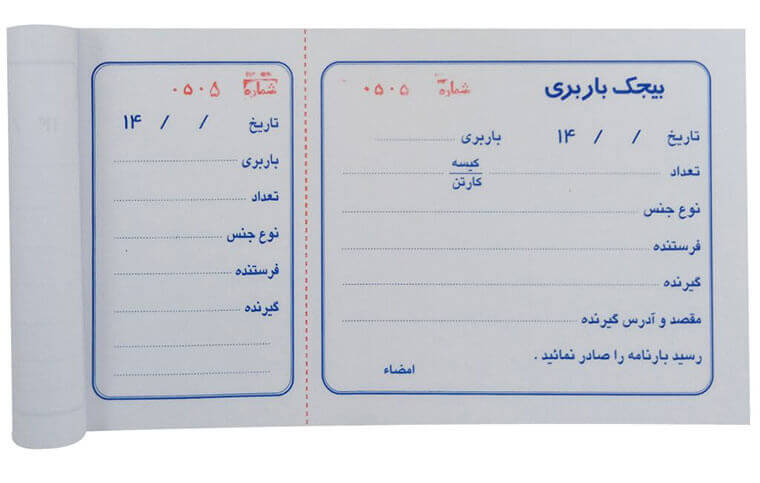 بیجک باربری
شماره ۰۵۰۵
تاریخ / / ۱۴ باربری
تعداد کیسه
کارتن
نوع جنس
فرستنده
گیرنده
مقصد و آدرس گیرنده
رسید بارنامه را صادر نمائید .
امضاء
شماره ۰۵۰۵
تاریخ / / ۱۴
باربری
تعداد
نوع جنس
فرستنده
گیرنده